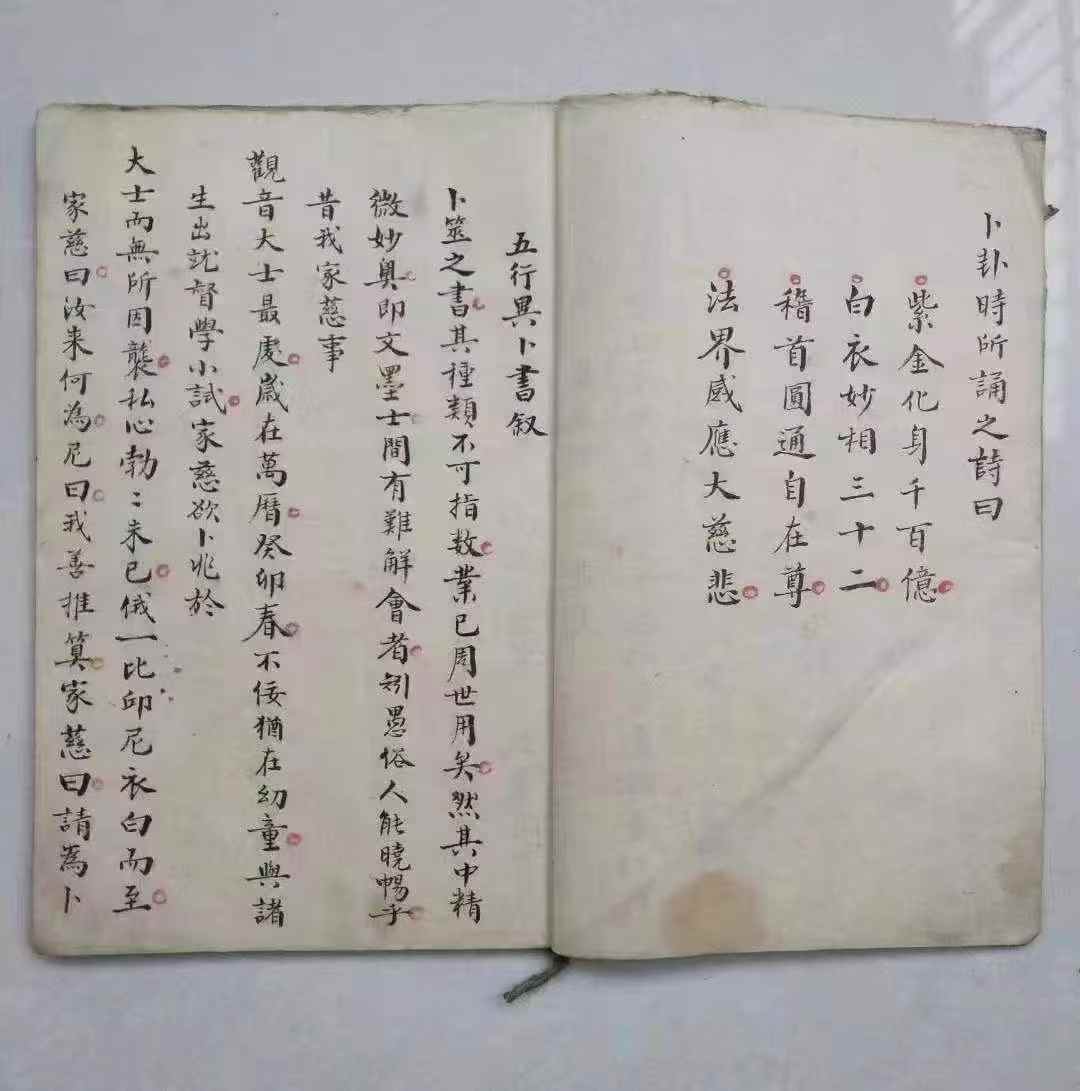 卜卦時所誦之詩曰
紫金化身千百億
白衣妙相三十二
稽首圓通自在尊
法界感應大慈悲
五行異卜書叙
卜筮之書其種類不可指数業已周世用矣然其中精
微妙奧即文墨士間有難解會者矧愚俗人能曉暢乎
昔我家慈事
觀音大士最虔歲在萬曆癸卯春不佞猶在幼童與諸
生出就督學小試家慈欲卜兆於
大士而無所因襲私心勃〻未已俄一比邱尼衣白而至
家慈曰汝来何為尼曰我善推算家慈曰請為卜